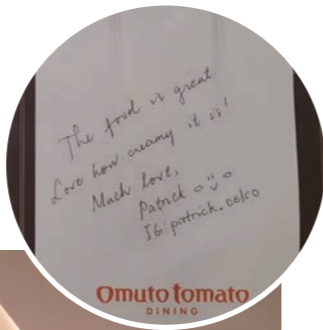 The food is great.
Love how creamy it is!
Much love,
Patrick
IG: patrick.celso
Omuto tomato
DINING